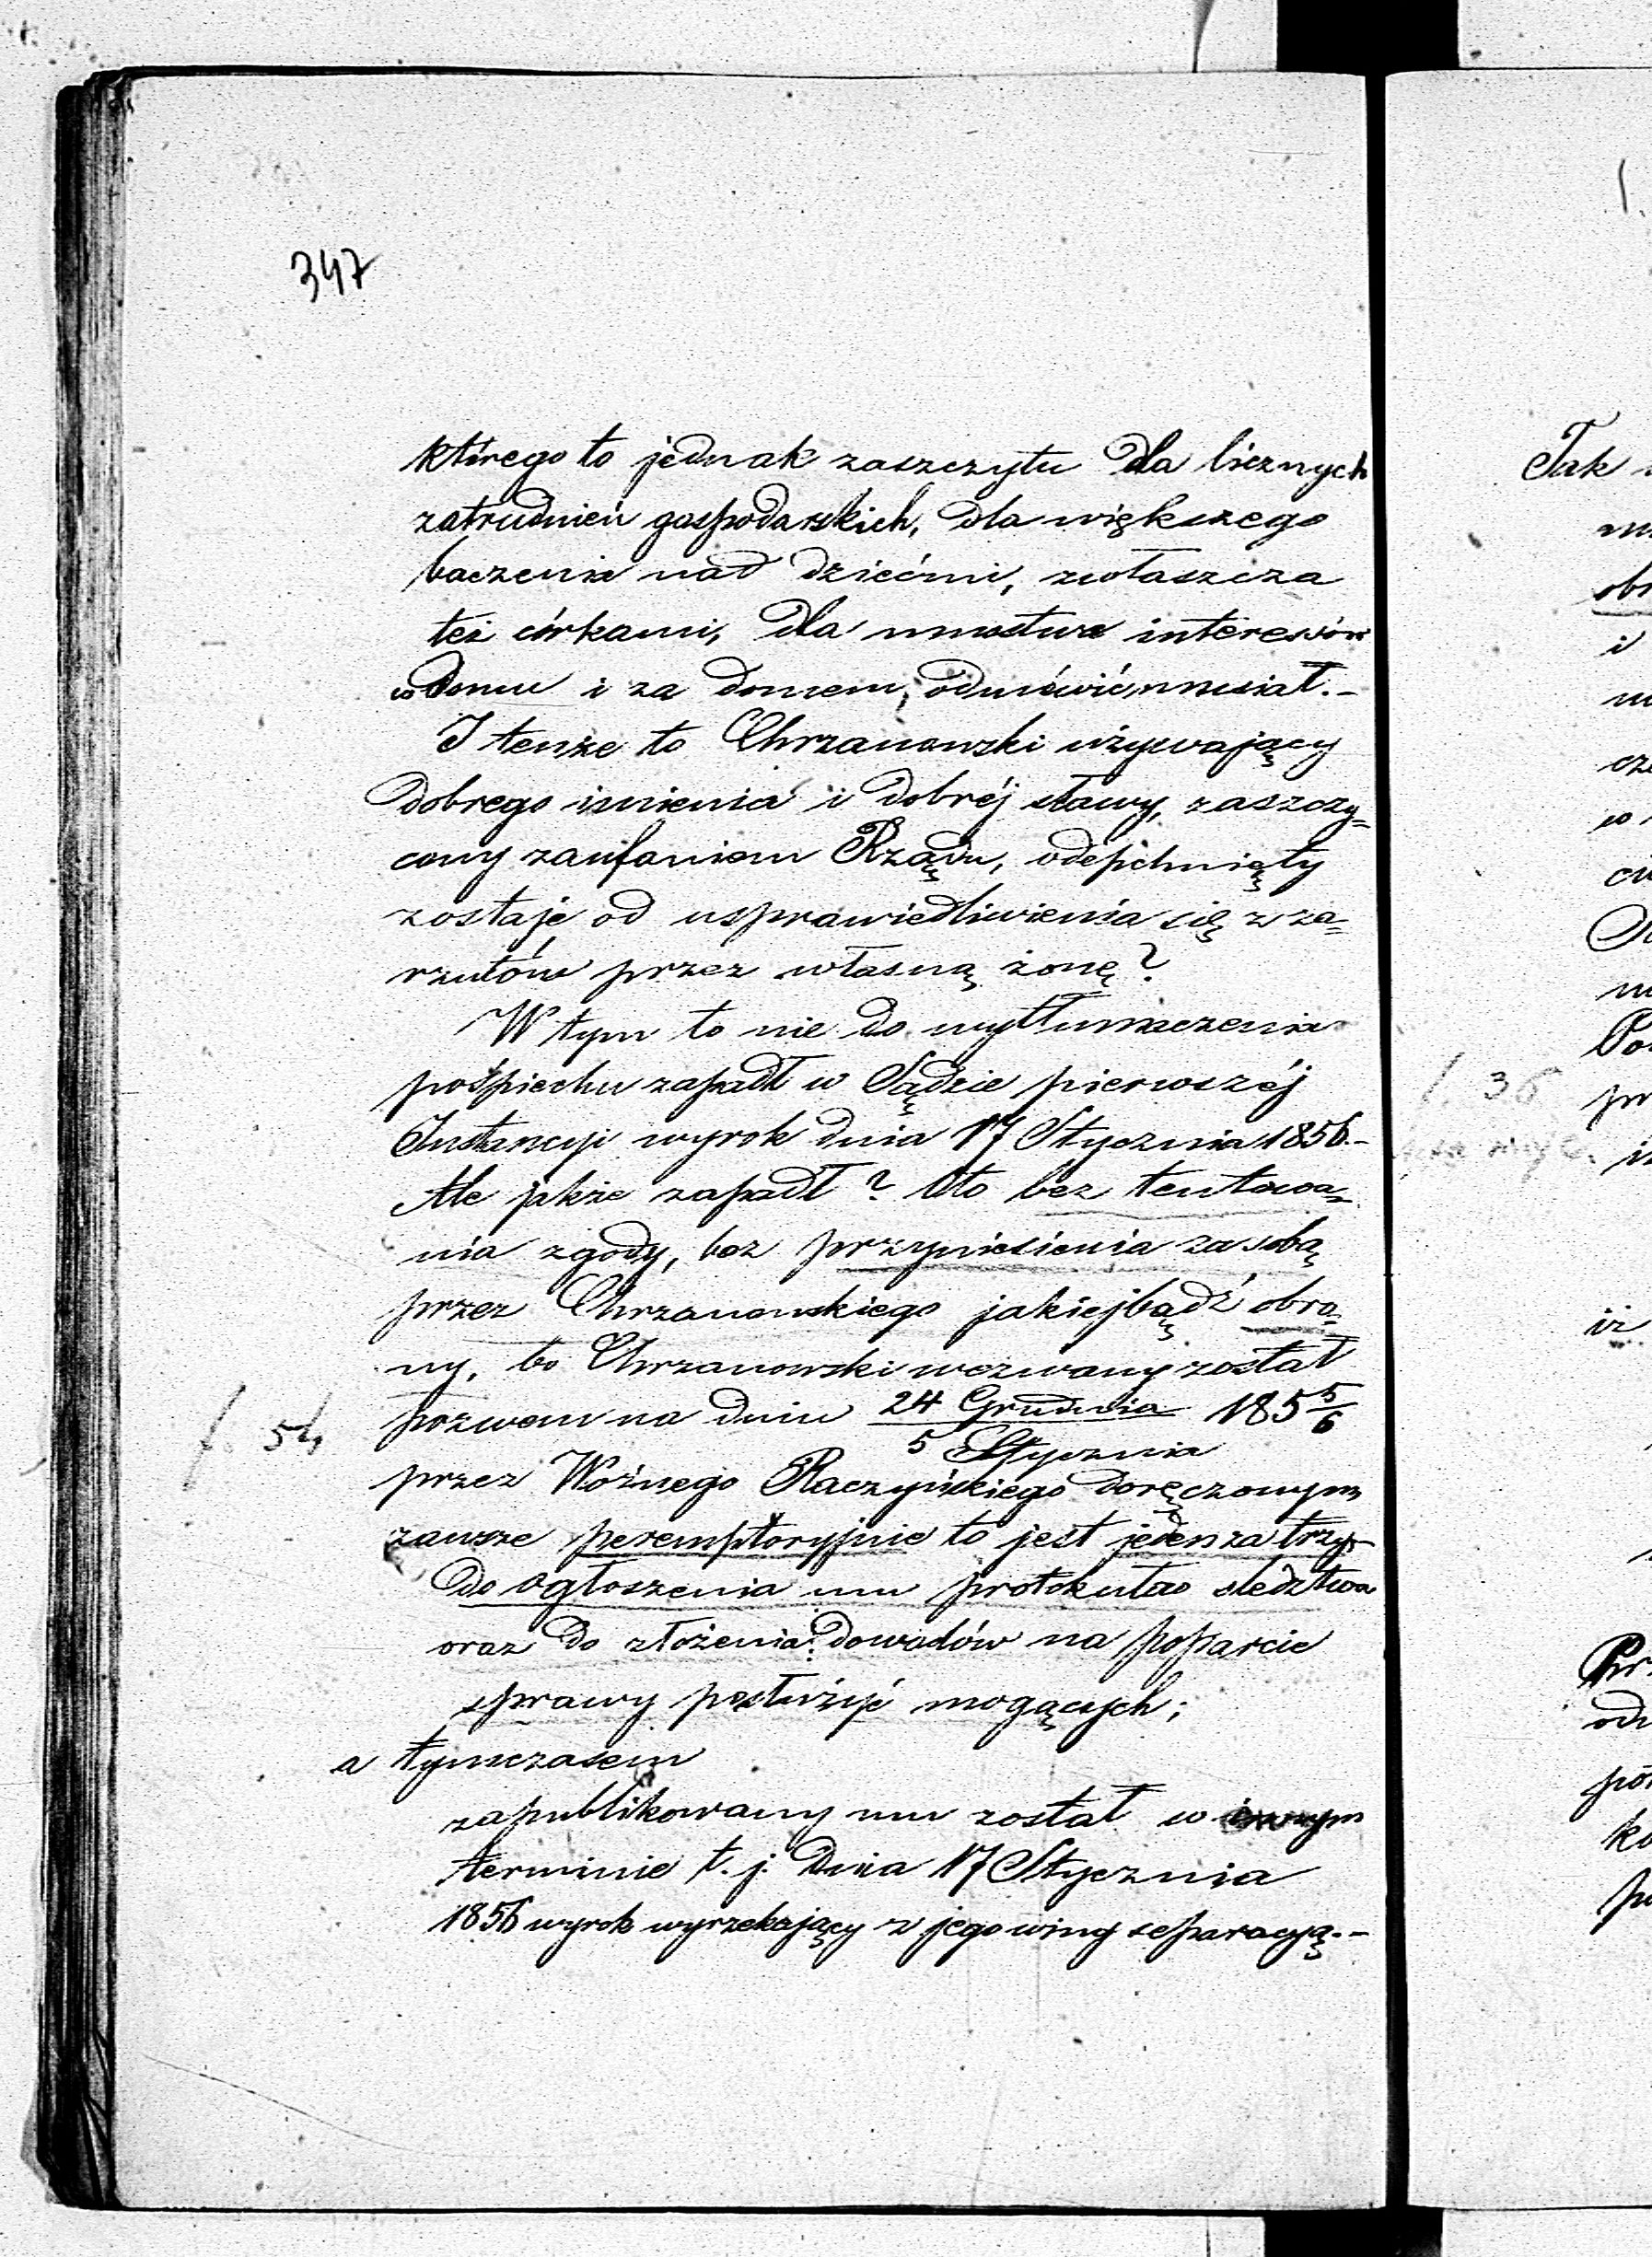 347
którego to jednak zaszczytu dla licznych
zatrudnień gospodarskich, dla większego
baczenia nad dziećmi, zwłaszcza
też córkami, dla mnóstwa interesów
w domu i za domem, odmówić musiał.-
I tenże to Chrzanowski używający
dobrego imienia i dobréj sławy, zaszczy=
cony zaufaniem Rządu, odepchnięty
zostaje od usprawiedliwienia się z za=
rzutów przez własną żonę?
W tym to nie do wytłumaczenia
pośpiechu zapadł w Sądzie pierwszéj
Instancyi wyrok dnia 17 Stycznia 1856.-
Ale jakże zapadł? Oto bez tentowa=
nia zgody, bez przyniesienia za sobą
przez Chrzanowskiego jakiejbądź obro=
ny, bo Chrzanowski wezwany został
f. 54 pozwem na dniu 24 Grudnia 185 5/6
5 Stycznia
przez Woźnego Raczyńskiego doręczonym
zawsze peremptoryjnie to jest jeden za trzy
do ogłoszenia mu protokułao śledztwa
oraz do złożenia dowodów na poparcie
sprawy posłużyć mogących;
a tymczasem
zapublikowany mu został w
terminie t. j. dnia 17 Stycznia
1856 wyrok wyrzekający z jego winy separacyą.-
f. 36
Tak